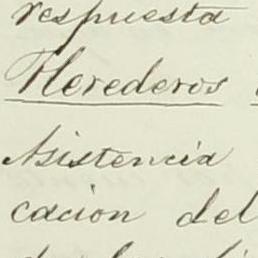 respuesta
Herederos
Asistencia
cacion del